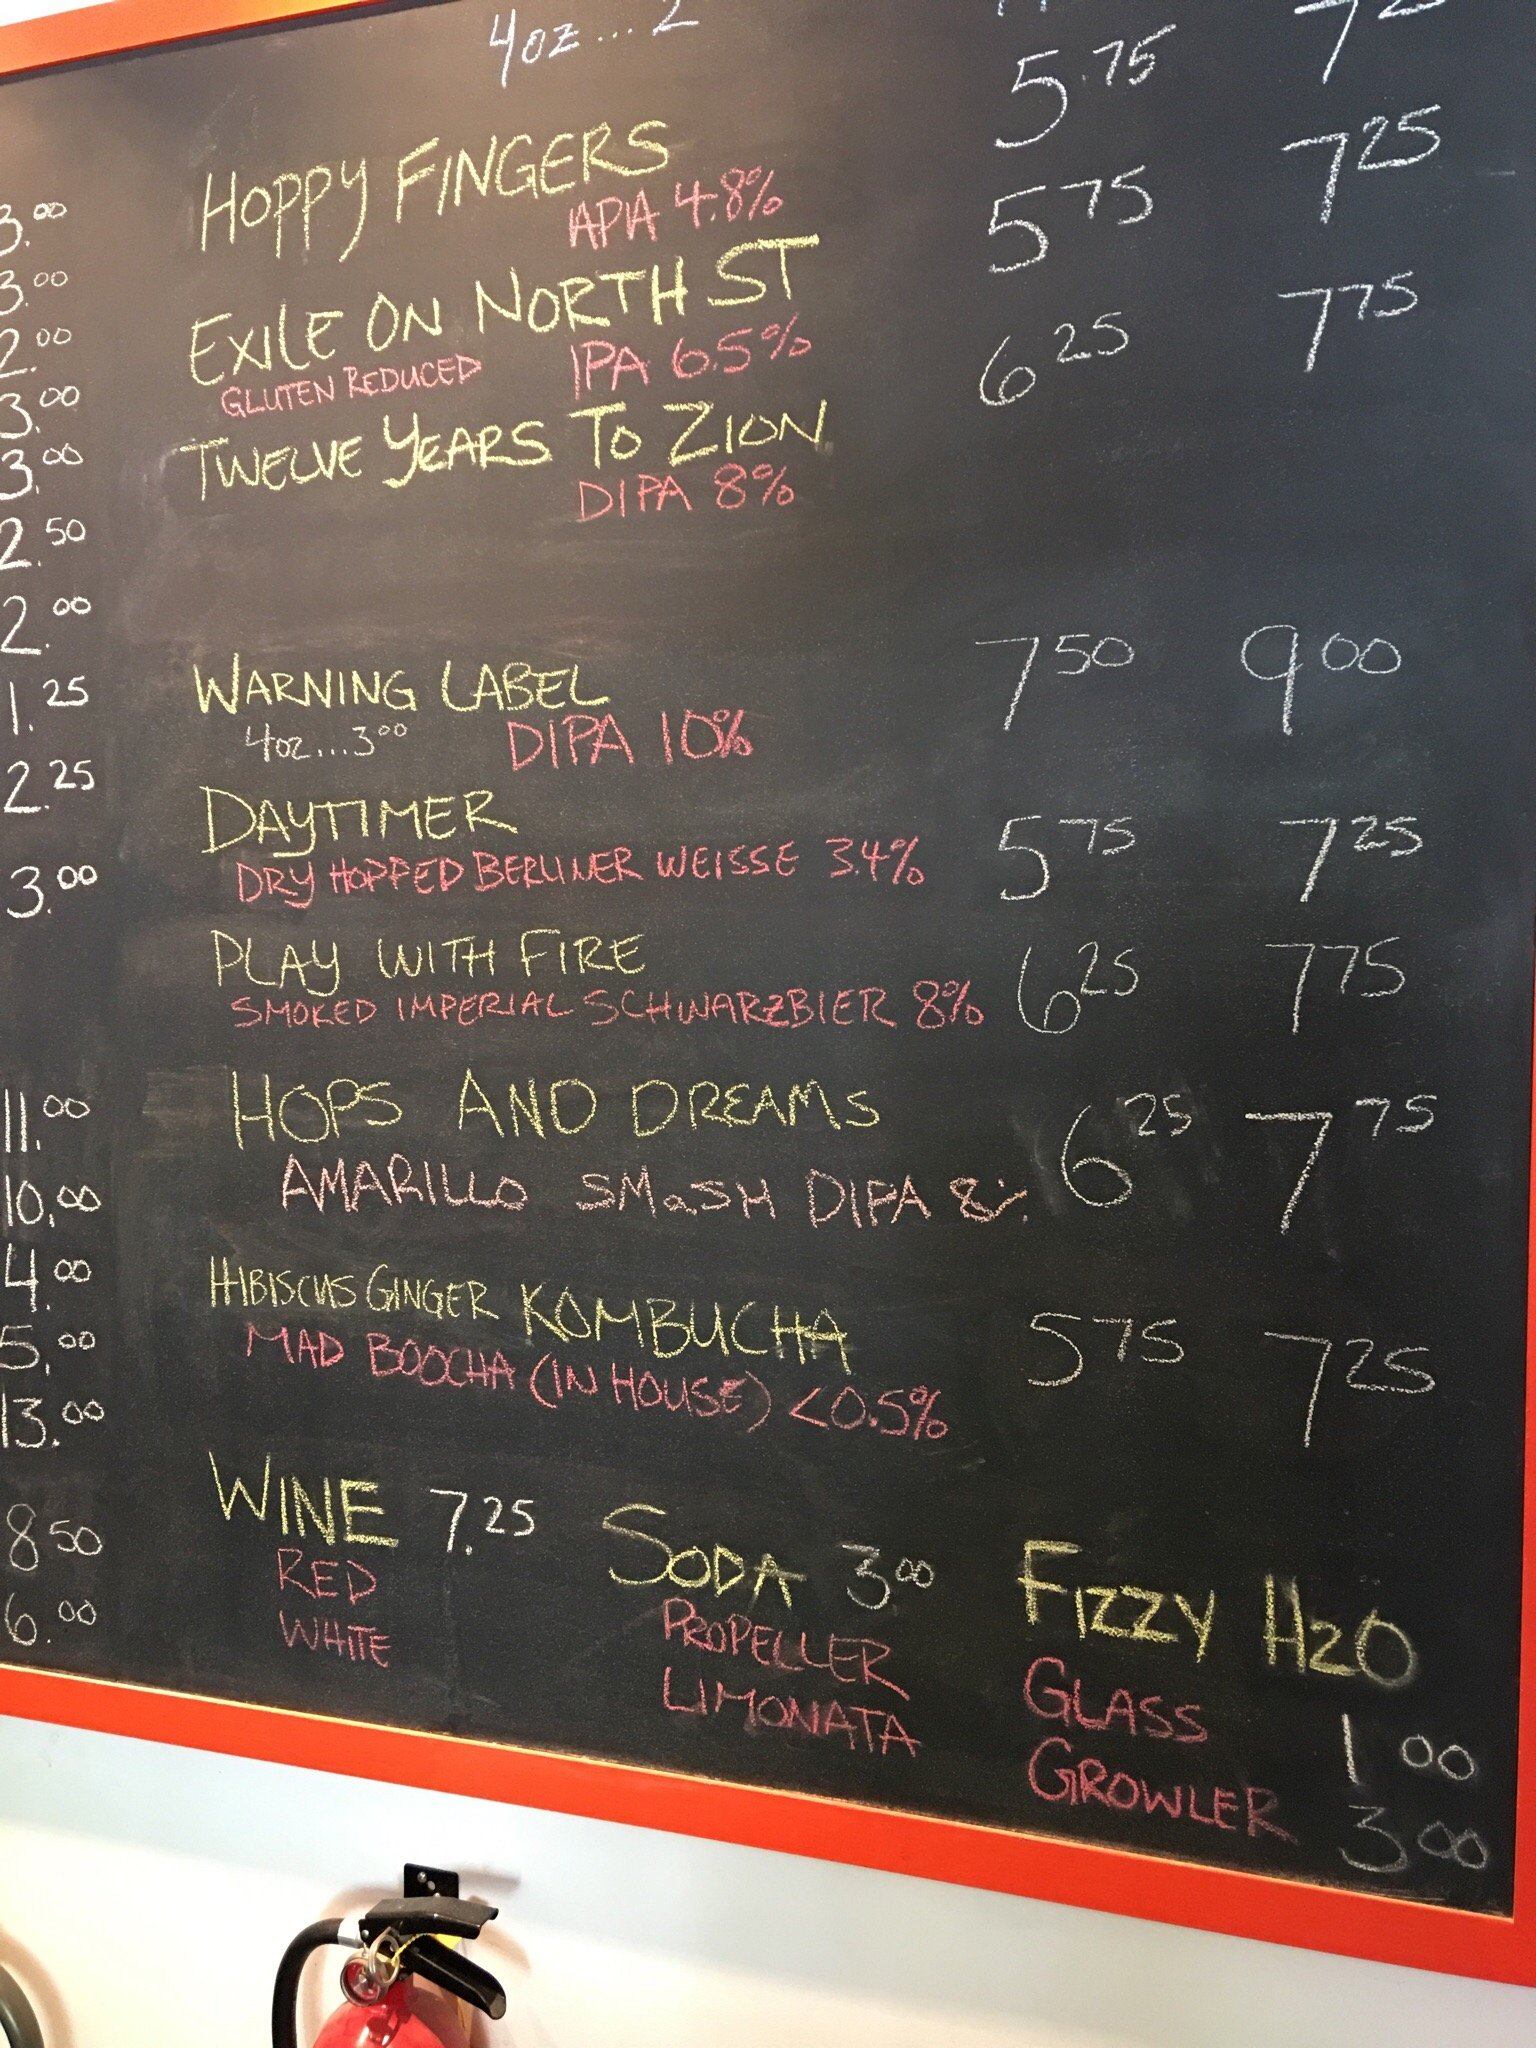 4oz...2
5.75 7 25
HOPPY FINGERS 5 75 7 25
3.00 APA 4.8%
3.00 EXILE ON NORTH ST 6 25 7 75
2.00 GLUTEN REDUCED IPA 6.5%
3.00 TWELVE YEARS TO ZION
3.00 DIPA 8%
2.50
2.00
WARNING LABEL 7 50 9 00
1.25 4oz...3 00 DIPA 10%
2.25 DAYTIMER 5 75 7 25
3.00 DRY HOPPED BERLINER WEISSE 3.4%
PLAY WITH FIRE 6 25 7 75
SMOKED IMPERIAL SCHWARZBIER 8%
11.00 HOPS AND DREAMS 6 25 7 75
10.00 AMARILLO SMaSH DIPA 8%
4.00 HIBISCUS GINGER KOMBUCHA 5 75 7 25
5.00 MAD BOOCHA (IN HOUSE) <0.5%
13.00
WINE 7.25 SODA 3 00 FIZZY H2O
8 50 RED PROPELLER GLASS 1 00
6.00 WHITE LIMONATA GROWLER 3 00